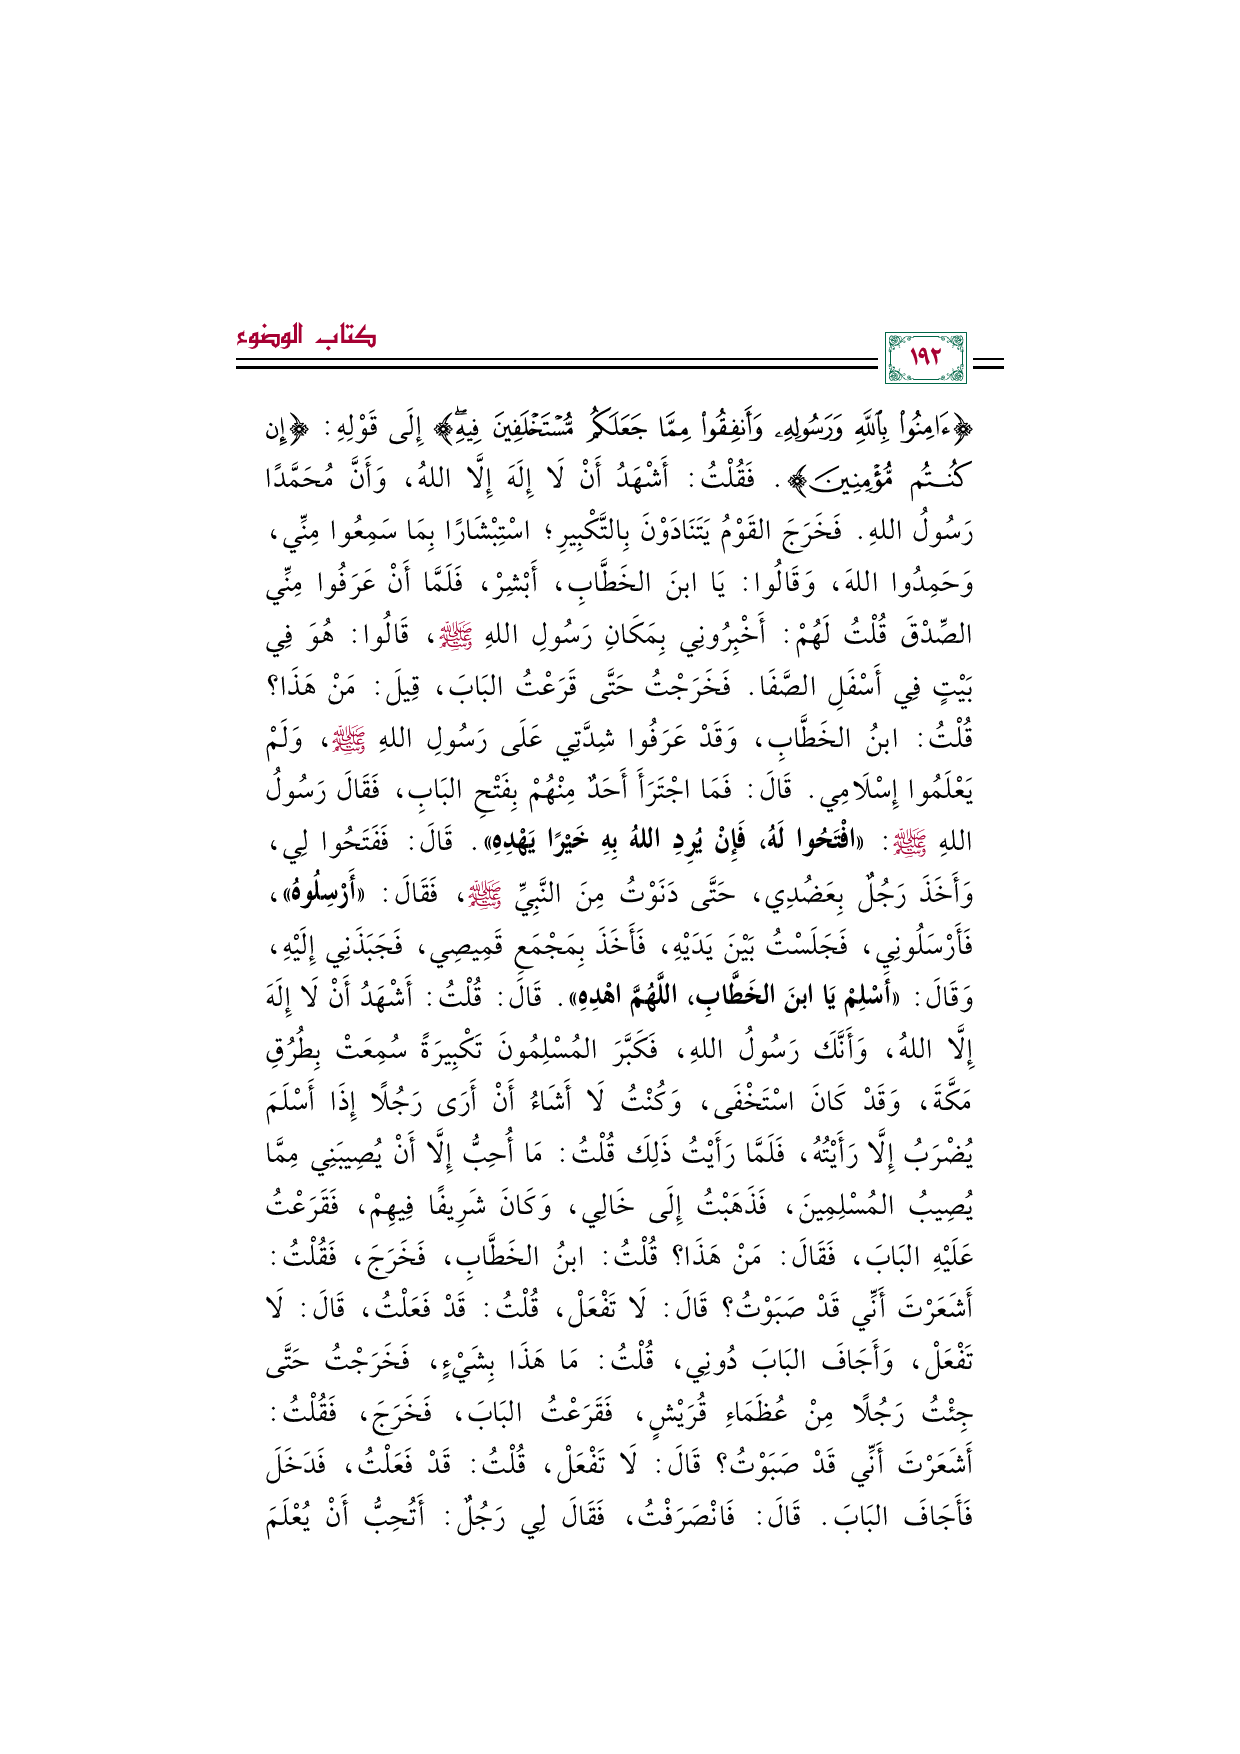 كتاب الوضوء
١٩٢
﴿ءَامِنُوا۟ بِٱللَّهِ وَرَسُولِهِۦ وَأَنفِقُوا۟ مِمَّا جَعَلَكُم مُّسْتَخْلَفِينَ فِيهِۖ﴾ إِلَى قَوْلِهِ: ﴿إِن
كُنتُم مُّؤْمِنِينَ﴾. فَقُلْتُ: أَشْهَدُ أَنْ لَا إِلَهَ إِلَّا اللهُ، وَأَنَّ مُحَمَّدًا
رَسُولُ اللهِ. فَخَرَجَ القَوْمُ يَتَنَادَوْنَ بِالتَّكْبِيرِ؛ اسْتِبْشَارًا بِمَا سَمِعُوا مِنِّي،
وَحَمِدُوا اللهَ، وَقَالُوا: يَا ابنَ الخَطَّابِ، أَبْشِرْ، فَلَمَّا أَنْ عَرَفُوا مِنِّي
الصِّدْقَ قُلْتُ لَهُمْ: أَخْبِرُونِي بِمَكَانِ رَسُولِ اللهِ ﷺ، قَالُوا: هُوَ فِي
بَيْتٍ فِي أَسْفَلِ الصَّفَا. فَخَرَجْتُ حَتَّى قَرَعْتُ البَابَ، قِيلَ: مَنْ هَذَا؟
قُلْتُ: ابنُ الخَطَّابِ، وَقَدْ عَرَفُوا شِدَّتِي عَلَى رَسُولِ اللهِ ﷺ، وَلَمْ
يَعْلَمُوا إِسْلَامِي. قَالَ: فَمَا اجْتَرَأَ أَحَدٌ مِنْهُمْ بِفَتْحِ البَابِ، فَقَالَ رَسُولُ
اللهِ ﷺ: «افْتَحُوا لَهُ، فَإِنْ يُرِدِ اللهُ بِهِ خَيْرًا يَهْدِهِ». قَالَ: فَفَتَحُوا لِي،
وَأَخَذَ رَجُلٌ بِعَضُدِي، حَتَّى دَنَوْتُ مِنَ النَّبِيِّ ﷺ، فَقَالَ: «أَرْسِلُوهُ»،
فَأَرْسَلُونِي، فَجَلَسْتُ بَيْنَ يَدَيْهِ، فَأَخَذَ بِمَجْمَعِ قَمِيصِي، فَجَبَذَنِي إِلَيْهِ،
وَقَالَ: «أَسْلِمْ يَا ابنَ الخَطَّابِ، اللَّهُمَّ اهْدِهِ». قَالَ: قُلْتُ: أَشْهَدُ أَنْ لَا إِلَهَ
إِلَّا اللهُ، وَأَنَّكَ رَسُولُ اللهِ، فَكَبَّرَ المُسْلِمُونَ تَكْبِيرَةً سُمِعَتْ بِطُرُقِ
مَكَّةَ، وَقَدْ كَانَ اسْتَخْفَى، وَكُنْتُ لَا أَشَاءُ أَنْ أَرَى رَجُلًا إِذَا أَسْلَمَ
يُضْرَبُ إِلَّا رَأَيْتُهُ، فَلَمَّا رَأَيْتُ ذَلِكَ قُلْتُ: مَا أُحِبُّ إِلَّا أَنْ يُصِيبَنِي مِمَّا
يُصِيبُ المُسْلِمِينَ، فَذَهَبْتُ إِلَى خَالِي، وَكَانَ شَرِيفًا فِيهِمْ، فَقَرَعْتُ
عَلَيْهِ البَابَ، فَقَالَ: مَنْ هَذَا؟ قُلْتُ: ابنُ الخَطَّابِ، فَخَرَجَ، فَقُلْتُ:
أَشَعَرْتَ أَنِّي قَدْ صَبَوْتُ؟ قَالَ: لَا تَفْعَلْ، قُلْتُ: قَدْ فَعَلْتُ، قَالَ: لَا
تَفْعَلْ، وَأَجَافَ البَابَ دُونِي، قُلْتُ: مَا هَذَا بِشَيْءٍ، فَخَرَجْتُ حَتَّى
جِئْتُ رَجُلًا مِنْ عُظَمَاءِ قُرَيْشٍ، فَقَرَعْتُ البَابَ، فَخَرَجَ، فَقُلْتُ:
أَشَعَرْتَ أَنِّي قَدْ صَبَوْتُ؟ قَالَ: لَا تَفْعَلْ، قُلْتُ: قَدْ فَعَلْتُ، فَدَخَلَ
فَأَجَافَ البَابَ. قَالَ: فَانْصَرَفْتُ، فَقَالَ لِي رَجُلٌ: أَتُحِبُّ أَنْ يُعْلَمَ